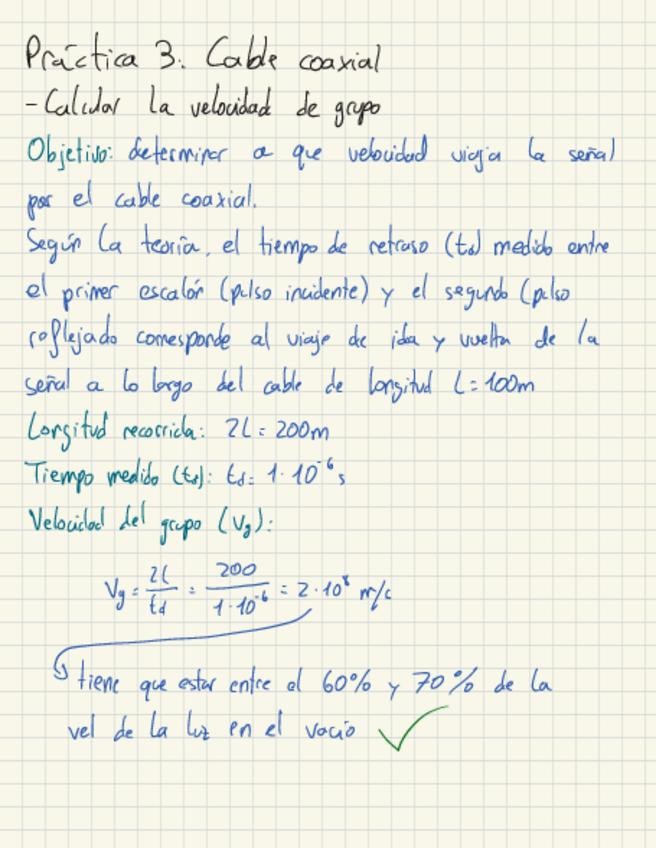 Práctica 3. Cable coaxial
- Calcular la velocidad de grupo
Objetivo: determinar a que velocidad viaja la señal
por el cable coaxial.
Según la teoría, el tiempo de retraso (td) medido entre
el primer escalón (pulso incidente) y el segundo (pulso
reflejado corresponde al viaje de ida y vuelta de la
señal a lo largo del cable de longitud L = 100m
Longitud recorrida: 2L = 200m
Tiempo medido (td): td = 1·10⁻⁶ s
Velocidad del grupo (Vg):
Vg = 2L/td = 200/1·10⁻⁶ = 2·10⁸ m/s
tiene que estar entre el 60% y 70% de la
vel de la luz en el vacio ✓